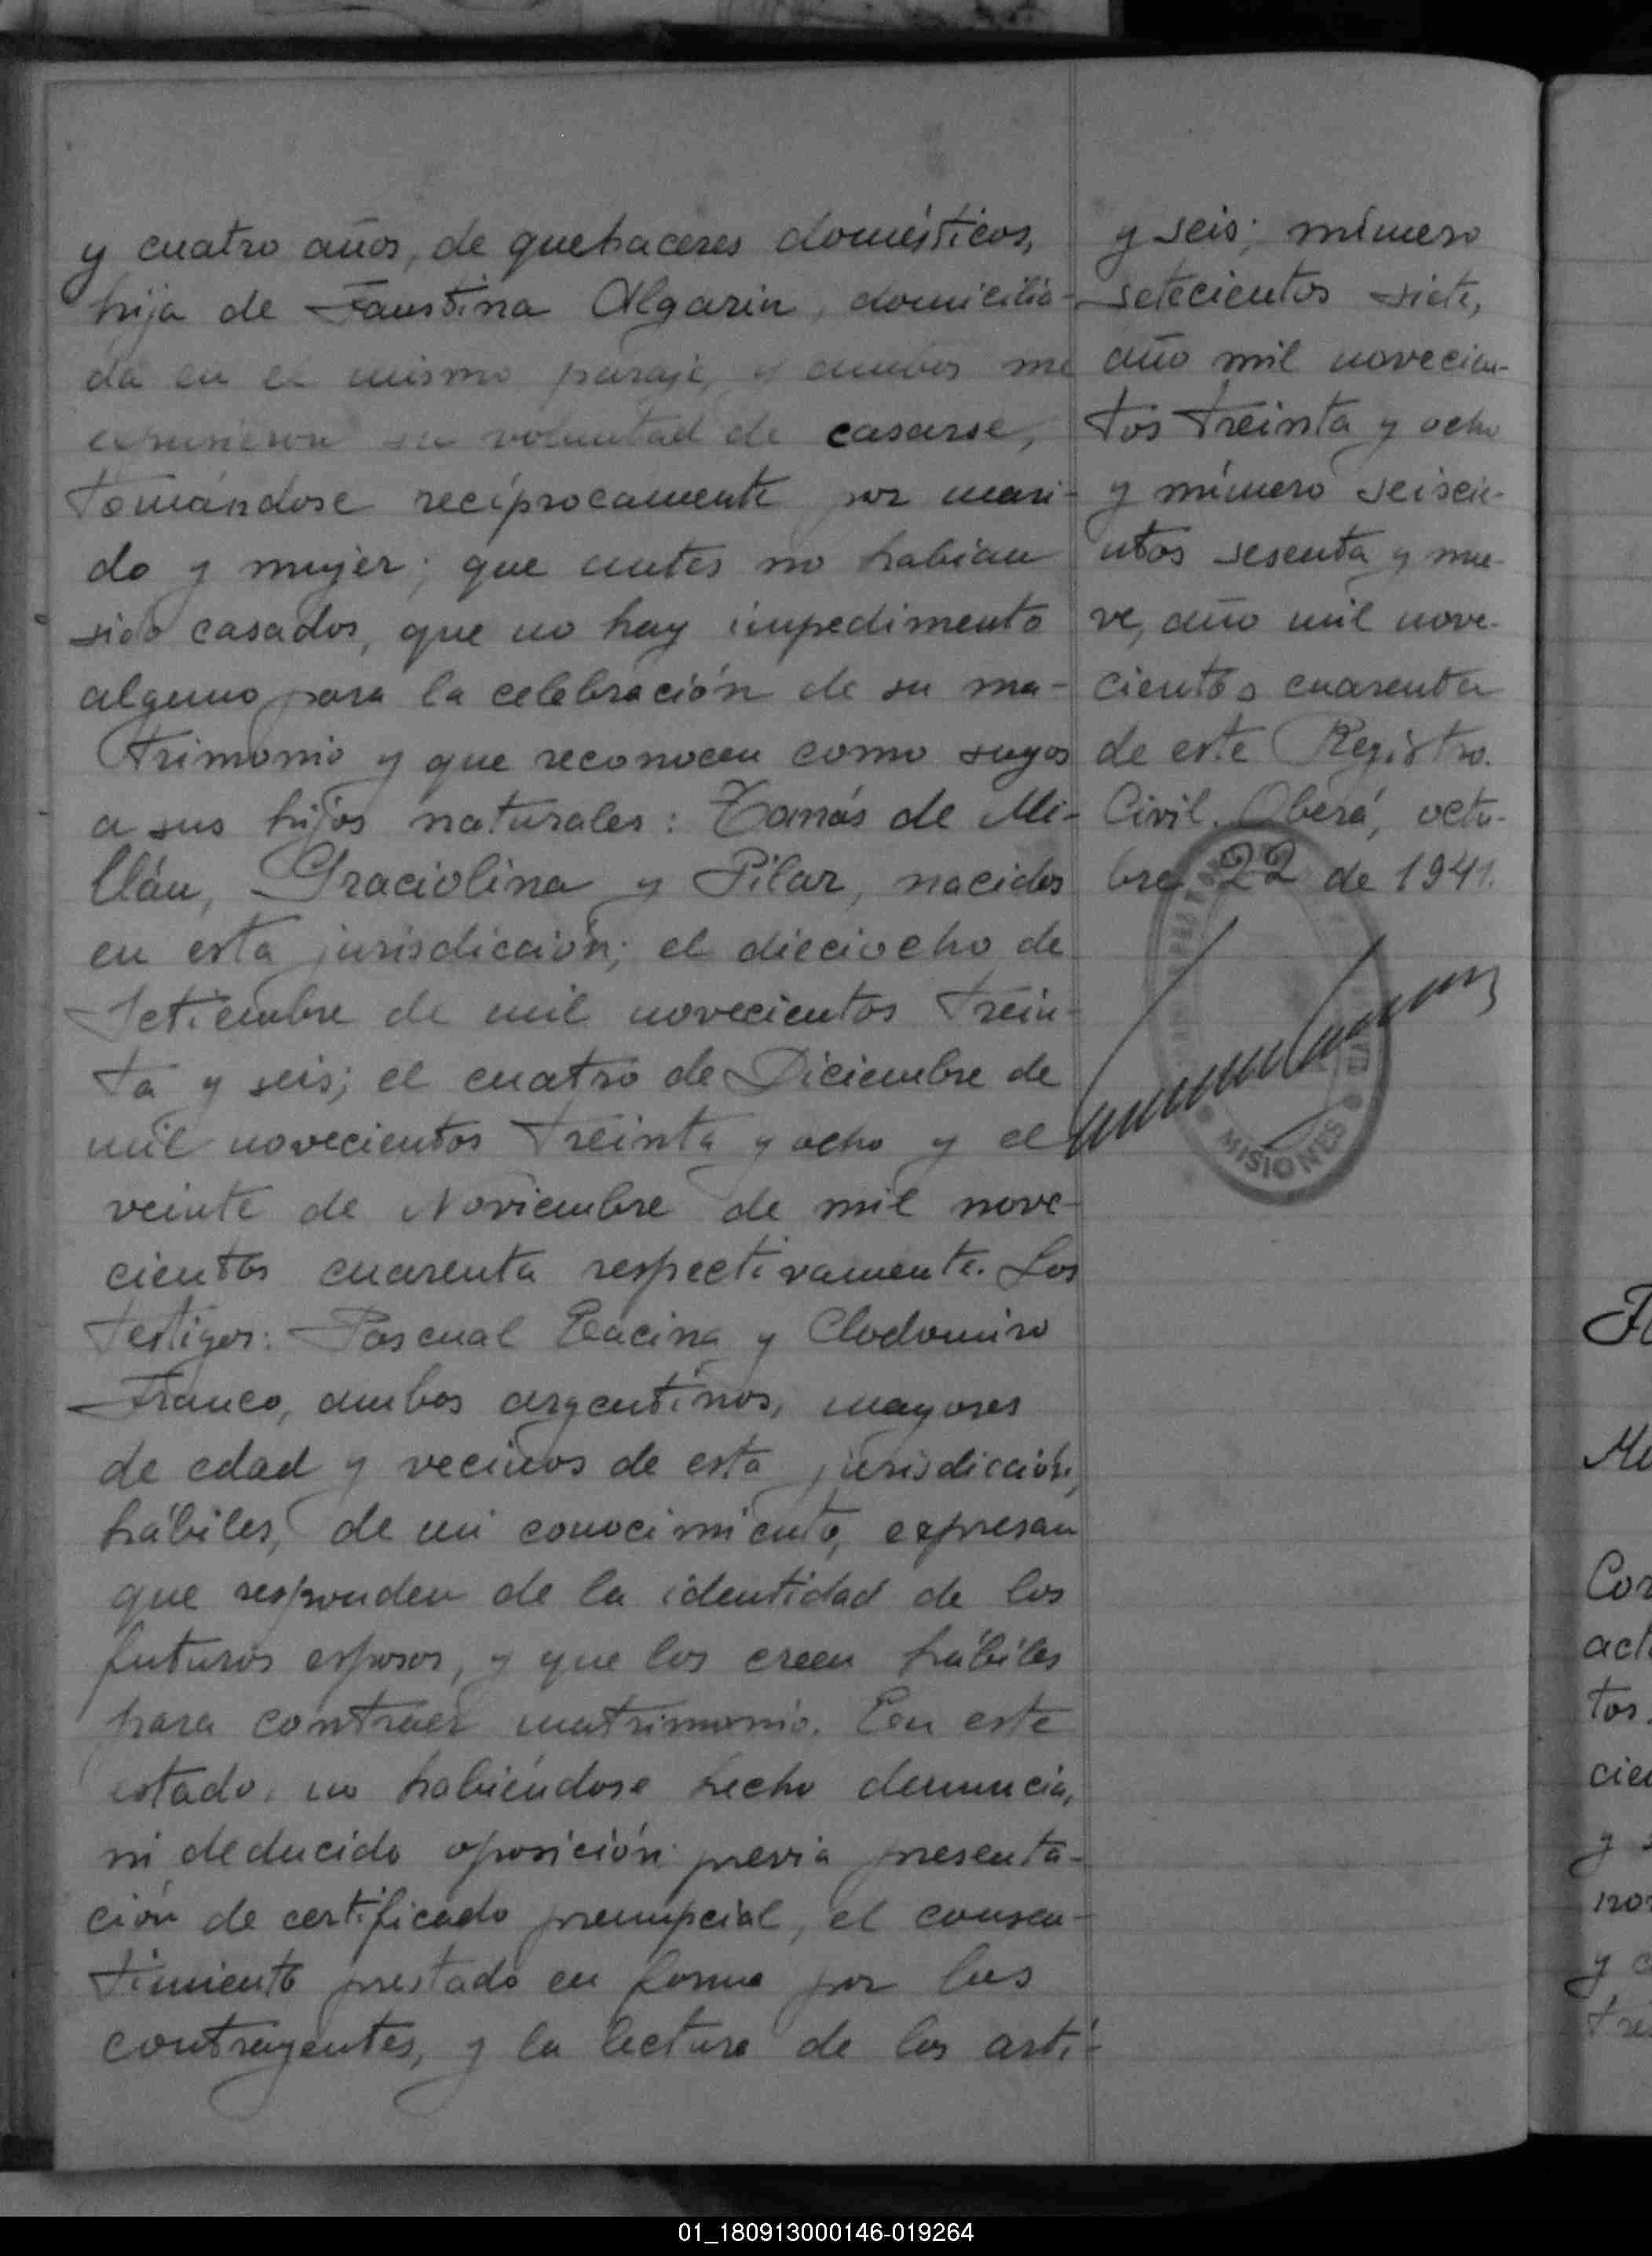 y cuatro años, de quehaceres domésticos,
hija de Faustina Algarin, domicilia-
da en el mismo paraje, y ambos me
expusieron su voluntad de casarse,
tomándose recíprocamente por mari-
do y mujer; que antes no habían
sido casados, que no hay impedimento
alguno para la celebración de su ma-
trimonio y que reconocen como suyos
a sus hijos naturales: Tomás de Mi-
llán, Graciolina y Pilar, nacidos
en esta jurisdicción; el dieciocho de
Setiembre de mil novecientos trein-
ta y seis; el cuatro de Diciembre de
mil novecientos treinta y ocho y el
veinte de Noviembre de mil nove-
cientos cuarenta respectivamente. Los
testigos: Pascual Encina y Clodomiro
Franco, ambos argentinos, mayores
de edad y vecinos de esta jurisdicción,
hábiles, de mi conocimiento, expresan
que responden de la identidad de los
futuros esposos, y que los creen hábiles
para contraer matrimonio. En este
estado, no habiéndose hecho denuncia,
ni deducido oposición, previa presenta-
ción de certificado prenupcial, el consen-
timiento prestado en forma por los
contrayentes, y la lectura de los artí-
y seis; número
setecientos siete,
año mil novecien-
tos treinta y ocho
y número seiscie-
ntos sesenta y nue-
ve, año mil nove-
cientos cuarenta
de este Registro
Civil. Oberá, octu-
bre 22 de 1941.
MISIONES
Cor
act
tos.
cie
y
no
y
tre
01_180913000146-019264